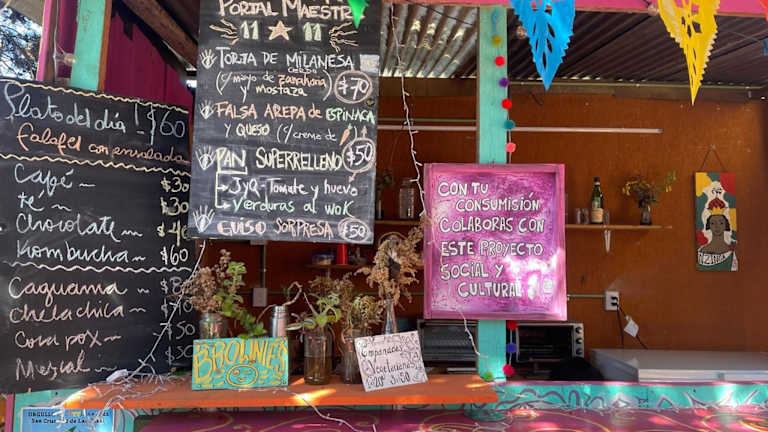 Plato del día! $60
falafel con ensalada
Café $30
té $30
Chocolate $40
Kombucha $60
Caguama
Chelachica $50
Mezcal $50
PORTAL MAESTR
11 11
TORTA DE MILANESA
CERDO
(c/mayo de zanahoria $70
y mostaza
FALSA AREPA de ESPINACA
Y QUESO (c/creme de
$50
PAN SUPERRELLENO
JyQ-Tomate y huevo
Verduras al wok
GUISO SORPRESA $50
CON TU
CONSUMISIÓN
COLABORAS CON
ESTE PROYECTO
SOCIAL Y
CULTURAL
BROWNIES
Empanadas
Vegetarianas
$20 3x50
ORGULLO
San Cruz de Las